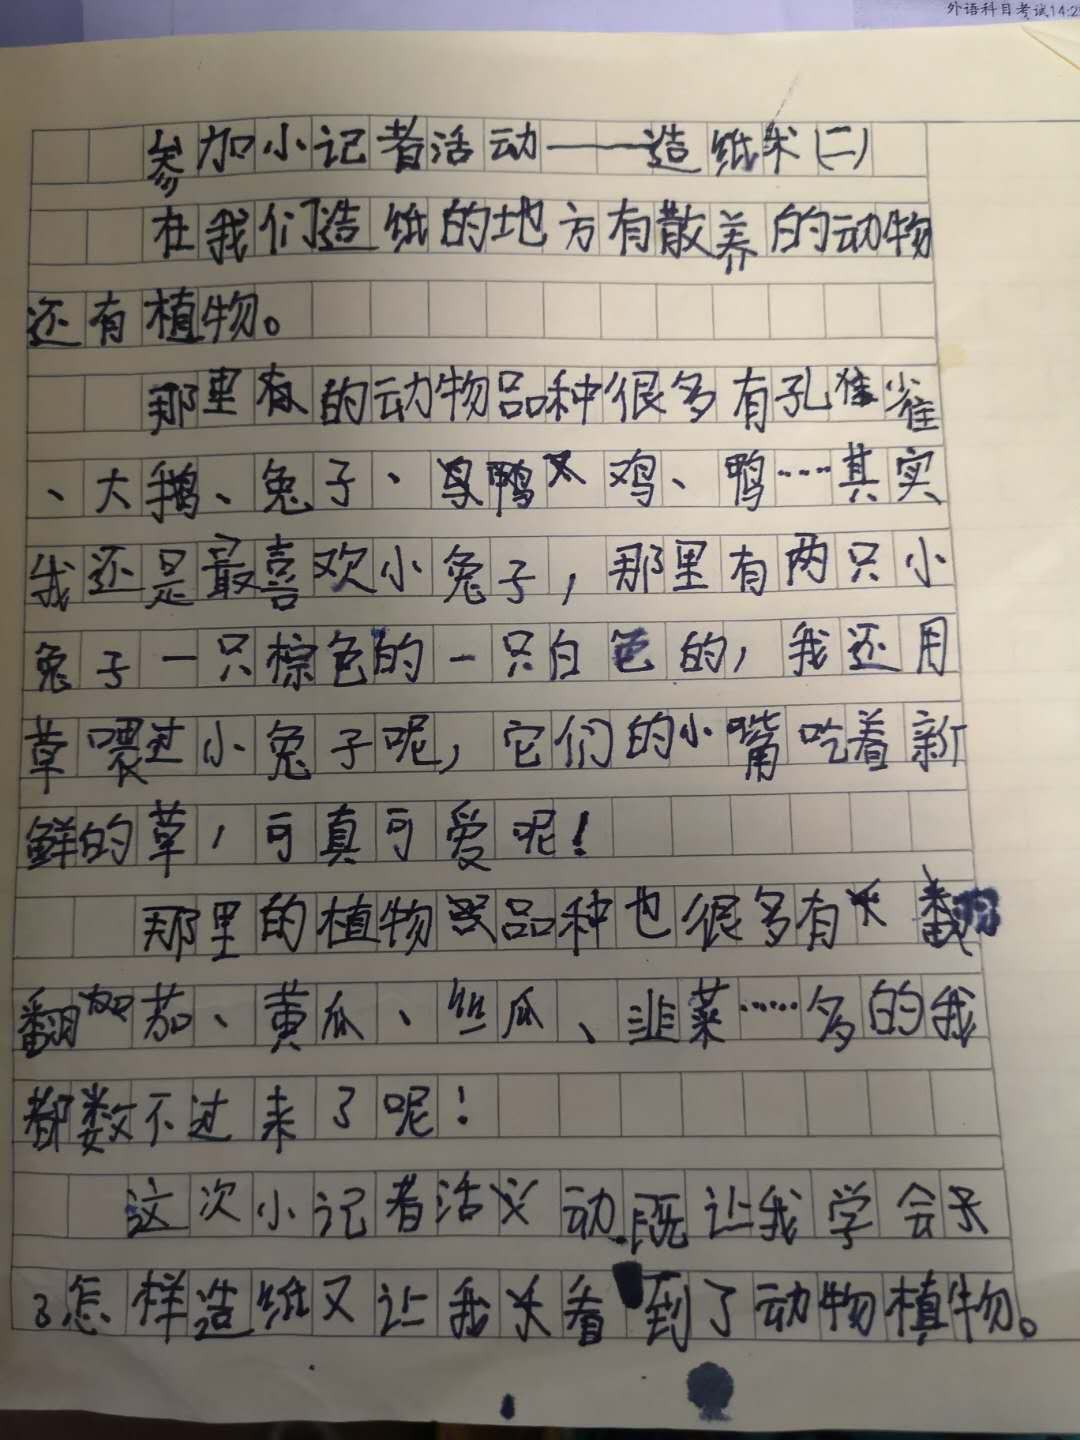 外语科目考试14:2
参加小记者活动——造纸术(二)
在我们造纸的地方有散养的动物
还有植物。
那里有的动物品种很多有孔雀
、大鹅、兔子、鸡、鸭……其实
我还是最喜欢小兔子，那里有两只小
兔子一只棕色的一只白色的，我还用
草喂过小兔子呢，它们的小嘴吃着新
鲜的草，可真可爱呢！
那里的植物品种也很多有
翻茄、黄瓜、丝瓜、韭菜……多的我
都数不过来了呢！
这次小记者活动既让我学会
了怎样造纸又让我看到了动物植物。